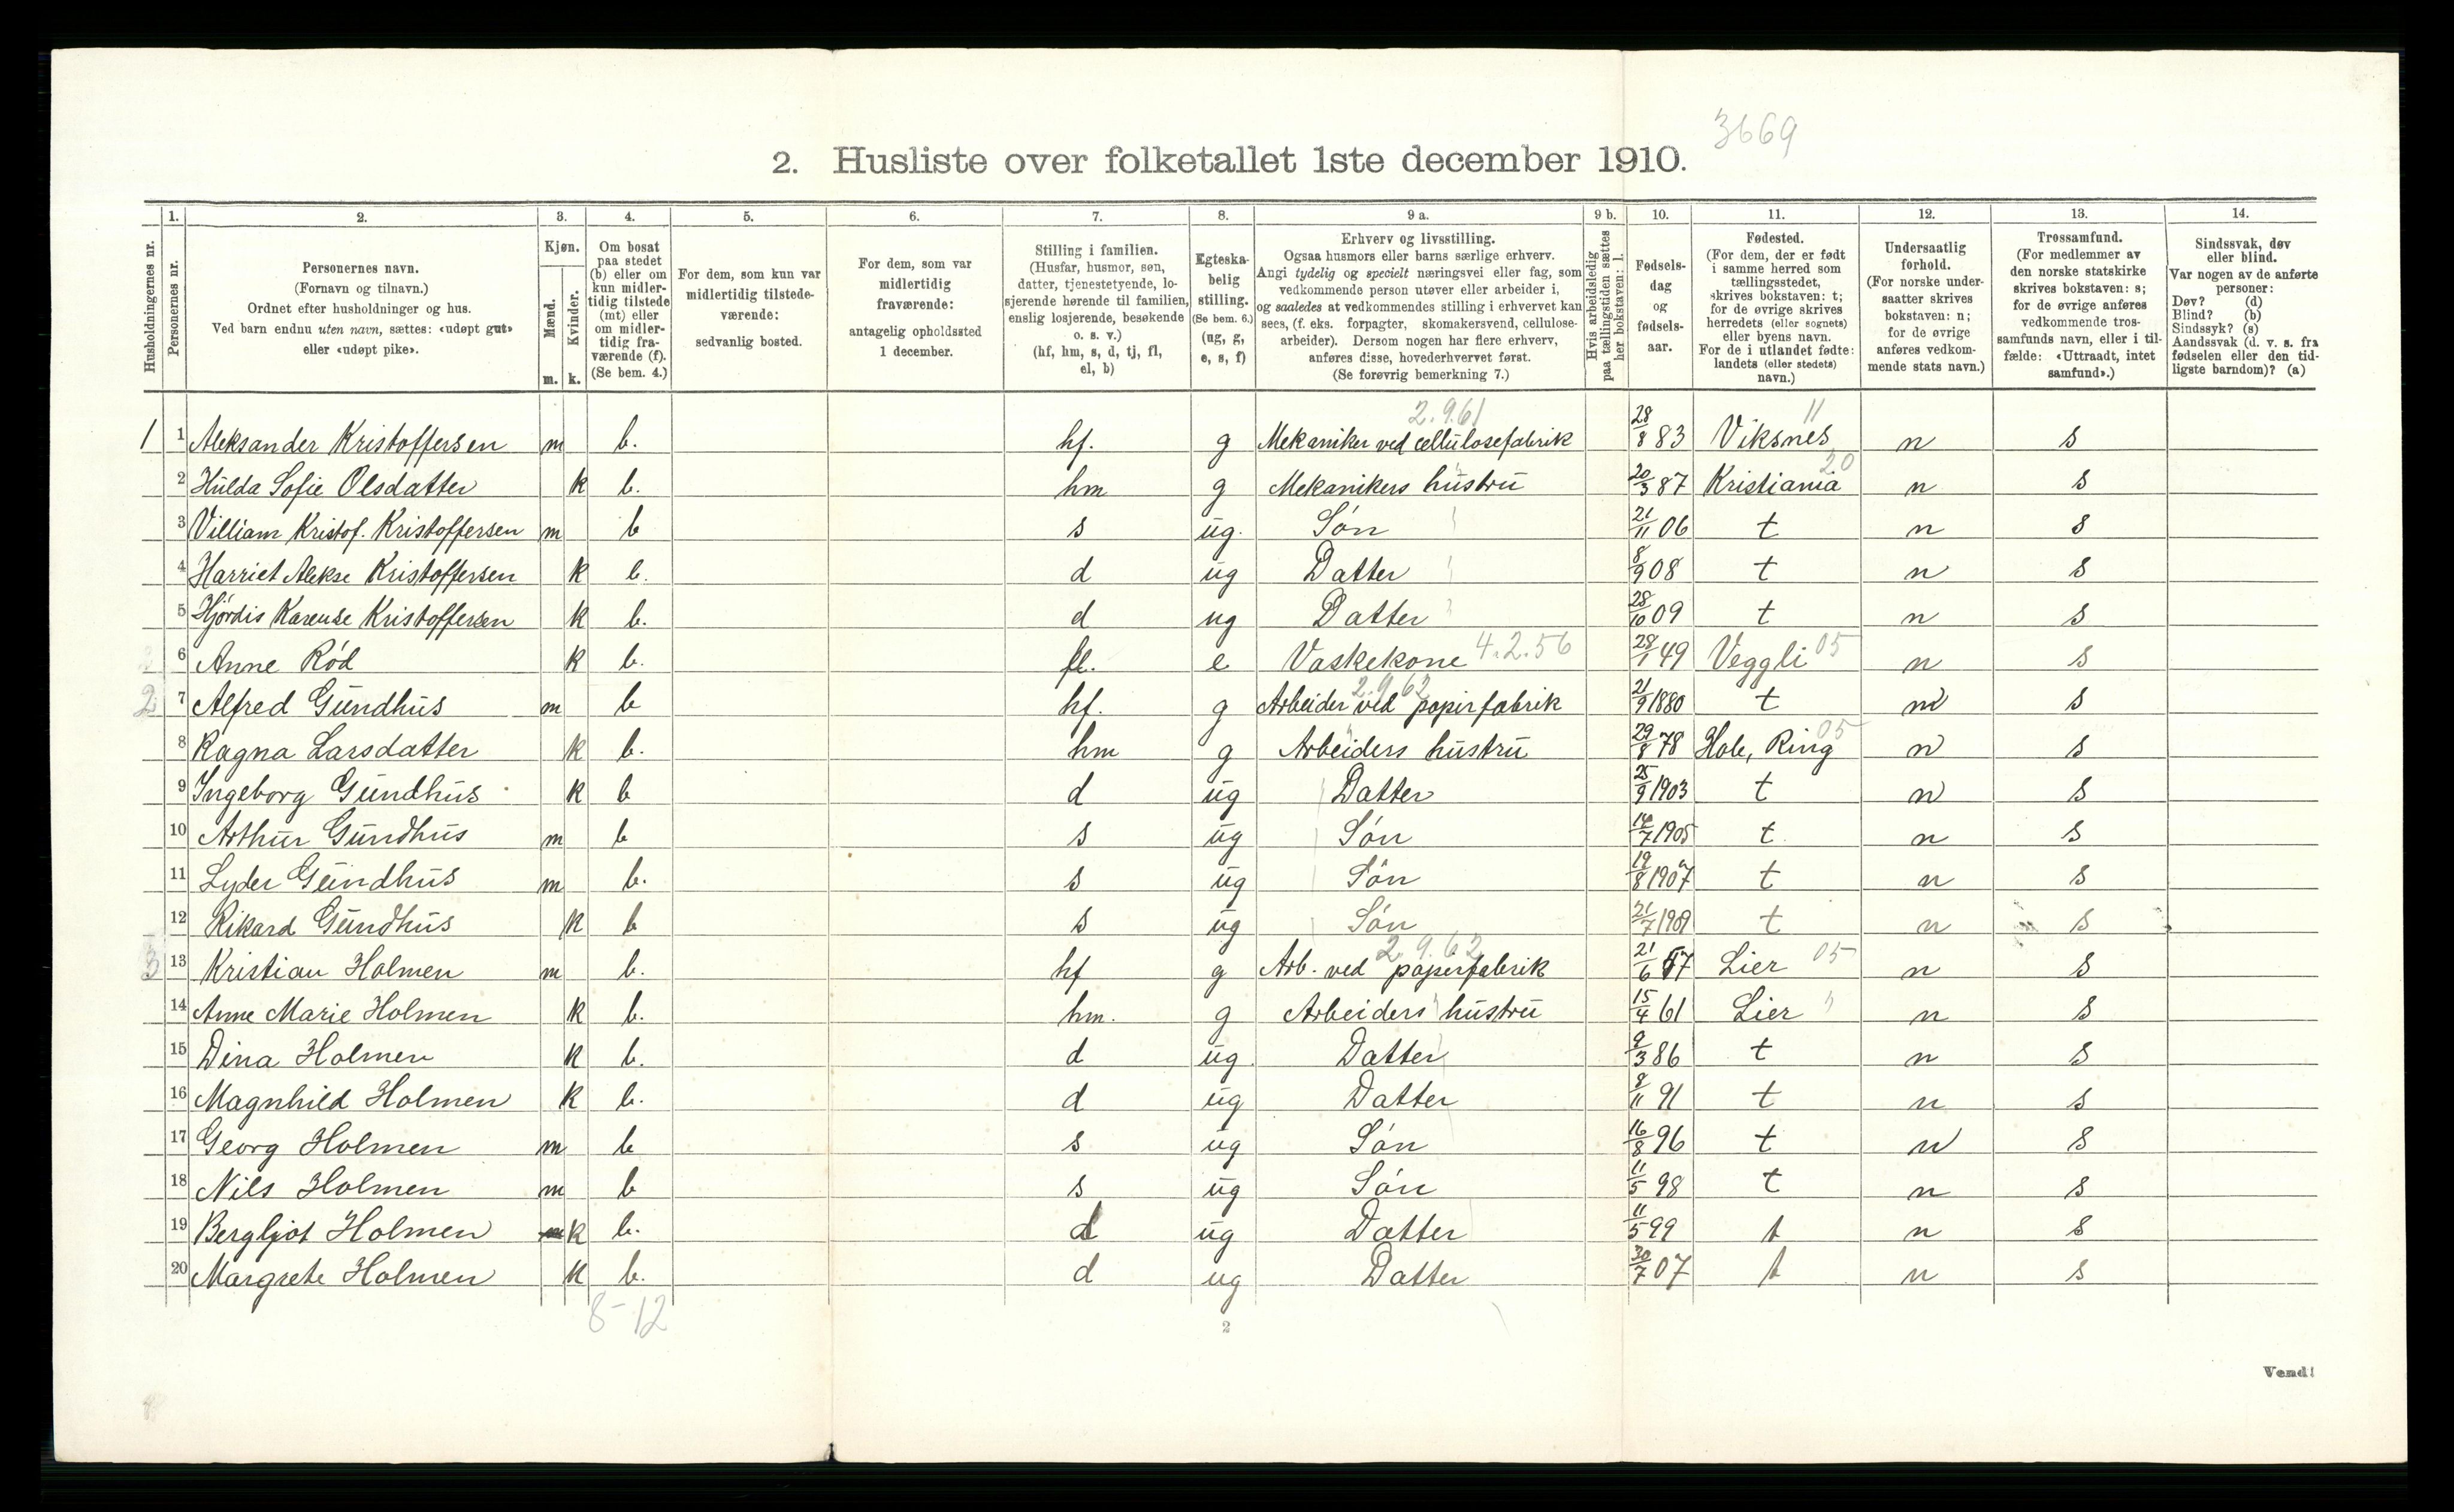 3669
2. Husliste over folketallet 1ste december 1910.
Husholdningernes nr.
1.
Personernes nr.
2.
Personernes navn.
(Fornavn og tilnavn.)
Ordnet efter husholdninger og hus.
Ved barn endnu uten navn, sættes: «udøpt gut»
eller «udøpt pike».
3.
Kjøn.
Mænd.
m.
Kvinder.
k.
4.
Om bosat
paa stedet
(b) eller om
kun midler-
tidig tilstede
(mt) eller
om midler-
tidig fra-
værende (f).
(Se bem. 4.)
5.
For dem, som kun var
midlertidig tilstede-
værende:
sedvanlig bosted.
6.
For dem, som var
midlertidig
fraværende:
antagelig opholdssted
1 december.
7.
Stilling i familien.
(Husfar, husmor, søn,
datter, tjenestetyende, lo-
sjerende hørende til familien,
enslig losjerende, besøkende
o. s. v.)
(hf, hm, s, d, tj, fl,
el, b)
8.
Egteska-
belig
stilling.
(Se bem. 6.)
(ug, g,
e, s, f)
9 a.
Erhverv og livsstilling.
Ogsaa husmors eller barns særlige erhverv.
Angi tydelig og specielt næringsvei eller fag, som
vedkommende person utøver eller arbeider i,
og saaledes at vedkommendes stilling i erhvervet kan
sees, (f. eks. forpagter, skomakersvend, cellulose-
arbeider). Dersom nogen har flere erhverv,
anføres disse, hovederhvervet først.
(Se forøvrig bemerkning 7.)
9 b.
Hvis arbeidsledig
paa tællingstiden sættes
her bokstaven: l.
10.
Fødsels-
dag
og
fødsels-
aar.
11.
Fødested.
(For dem, der er født
i samme herred som
tællingsstedet,
skrives bokstaven: t;
for de øvrige skrives
herredets (eller sognets)
eller byens navn.
For de i utlandet fødte:
landets (eller stedets)
navn.)
12.
Undersaatlig
forhold.
(For norske under-
saatter skrives
bokstaven: n;
for de øvrige
anføres vedkom-
mende stats navn.)
13.
Trossamfund.
(For medlemmer av
den norske statskirke
skrives bokstaven: s;
for de øvrige anføres
vedkommende tros-
samfunds navn, eller i til-
fælde: «Uttraadt, intet
samfund».)
14.
Sindssvak, døv
eller blind.
Var nogen av de anførte
personer:
Døv? (d)
Blind? (b)
Sindssyk? (s)
Aandssvak (d. v. s. fra
fødselen eller den tid-
ligste barndom)? (a)
2.9.61 11
1 1 Aleksander Kristoffersen m b. hf. g Mekaniker ved cellulosefabrik 28/8 83 Viksnes n s
20
2 Hulda Sofie Olsdatter k b. hm g Mekanikers hustru 20/3 87 Kristiania n s
3 Villiam Kristof. Kristoffersen m b s ug. Søn 21/11 06 t n s
4 Harriet Alekse Kristoffersen k b. d ug Datter 8/9 08 t n s
5 Hjørdis Karense Kristoffersen k b. d ug Datter 28/10 09 t n s
6 Anne Rød k b. fl. e Vaskekone 4.2.56 28/1 49 Veggli 05 n s
2.9.62
2 7 Alfred Gundhus m b hf. g Arbeider ved papirfabrik 21/9 1880 t n s
05
8 Ragna Larsdatter k b. hm g Arbeiders hustru 29/8 78 Hole, Ring n s
9 Ingeborg Gundhus k b d ug Datter 25/9 1903 t n s
10 Arthur Gundhus m b s ug Søn 14/7 1905 t n s
11 Lyder Gundhus m b. s ug Søn 19/8 1907 t n s
12 Rikard Gundhus k b s ug Søn 21/7 1909 t n s
2.9.62
3 13 Kristian Holmen m b. hf g Arb. ved papirfabrik 21/6 57 Lier 05 n s
14 Anne Marie Holmen k b. hm. g Arbeiders hustru 15/4 61 Lier " n s
15 Dina Holmen k b. d ug. Datter 9/3 86 t n s
16 Magnhild Holmen k b. d ug Datter 8/11 91 t n s
17 Georg Holmen m b s ug Søn 16/8 96 t n s
18 Nils Holmen m b s ug Søn 11/5 98 t n s
19 Bergljot Holmen m k b. d ug Datter 11/5 99 t n s
20 Margrete Holmen k b. d ug Datter 30/7 07 t n s
8-12
2
Vend!